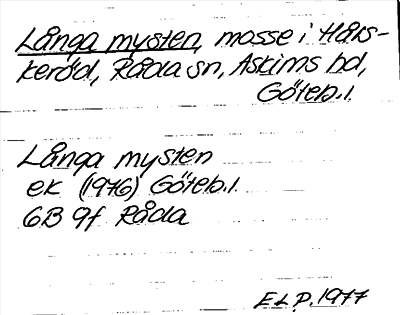 Långa mysten, mosse i Håls-
keröd, Råda sn, Askims hd,
Göteb. l.
Långa mysten
ek (1976) Göteb. l.
6B 9f Råda
E L P. 1977